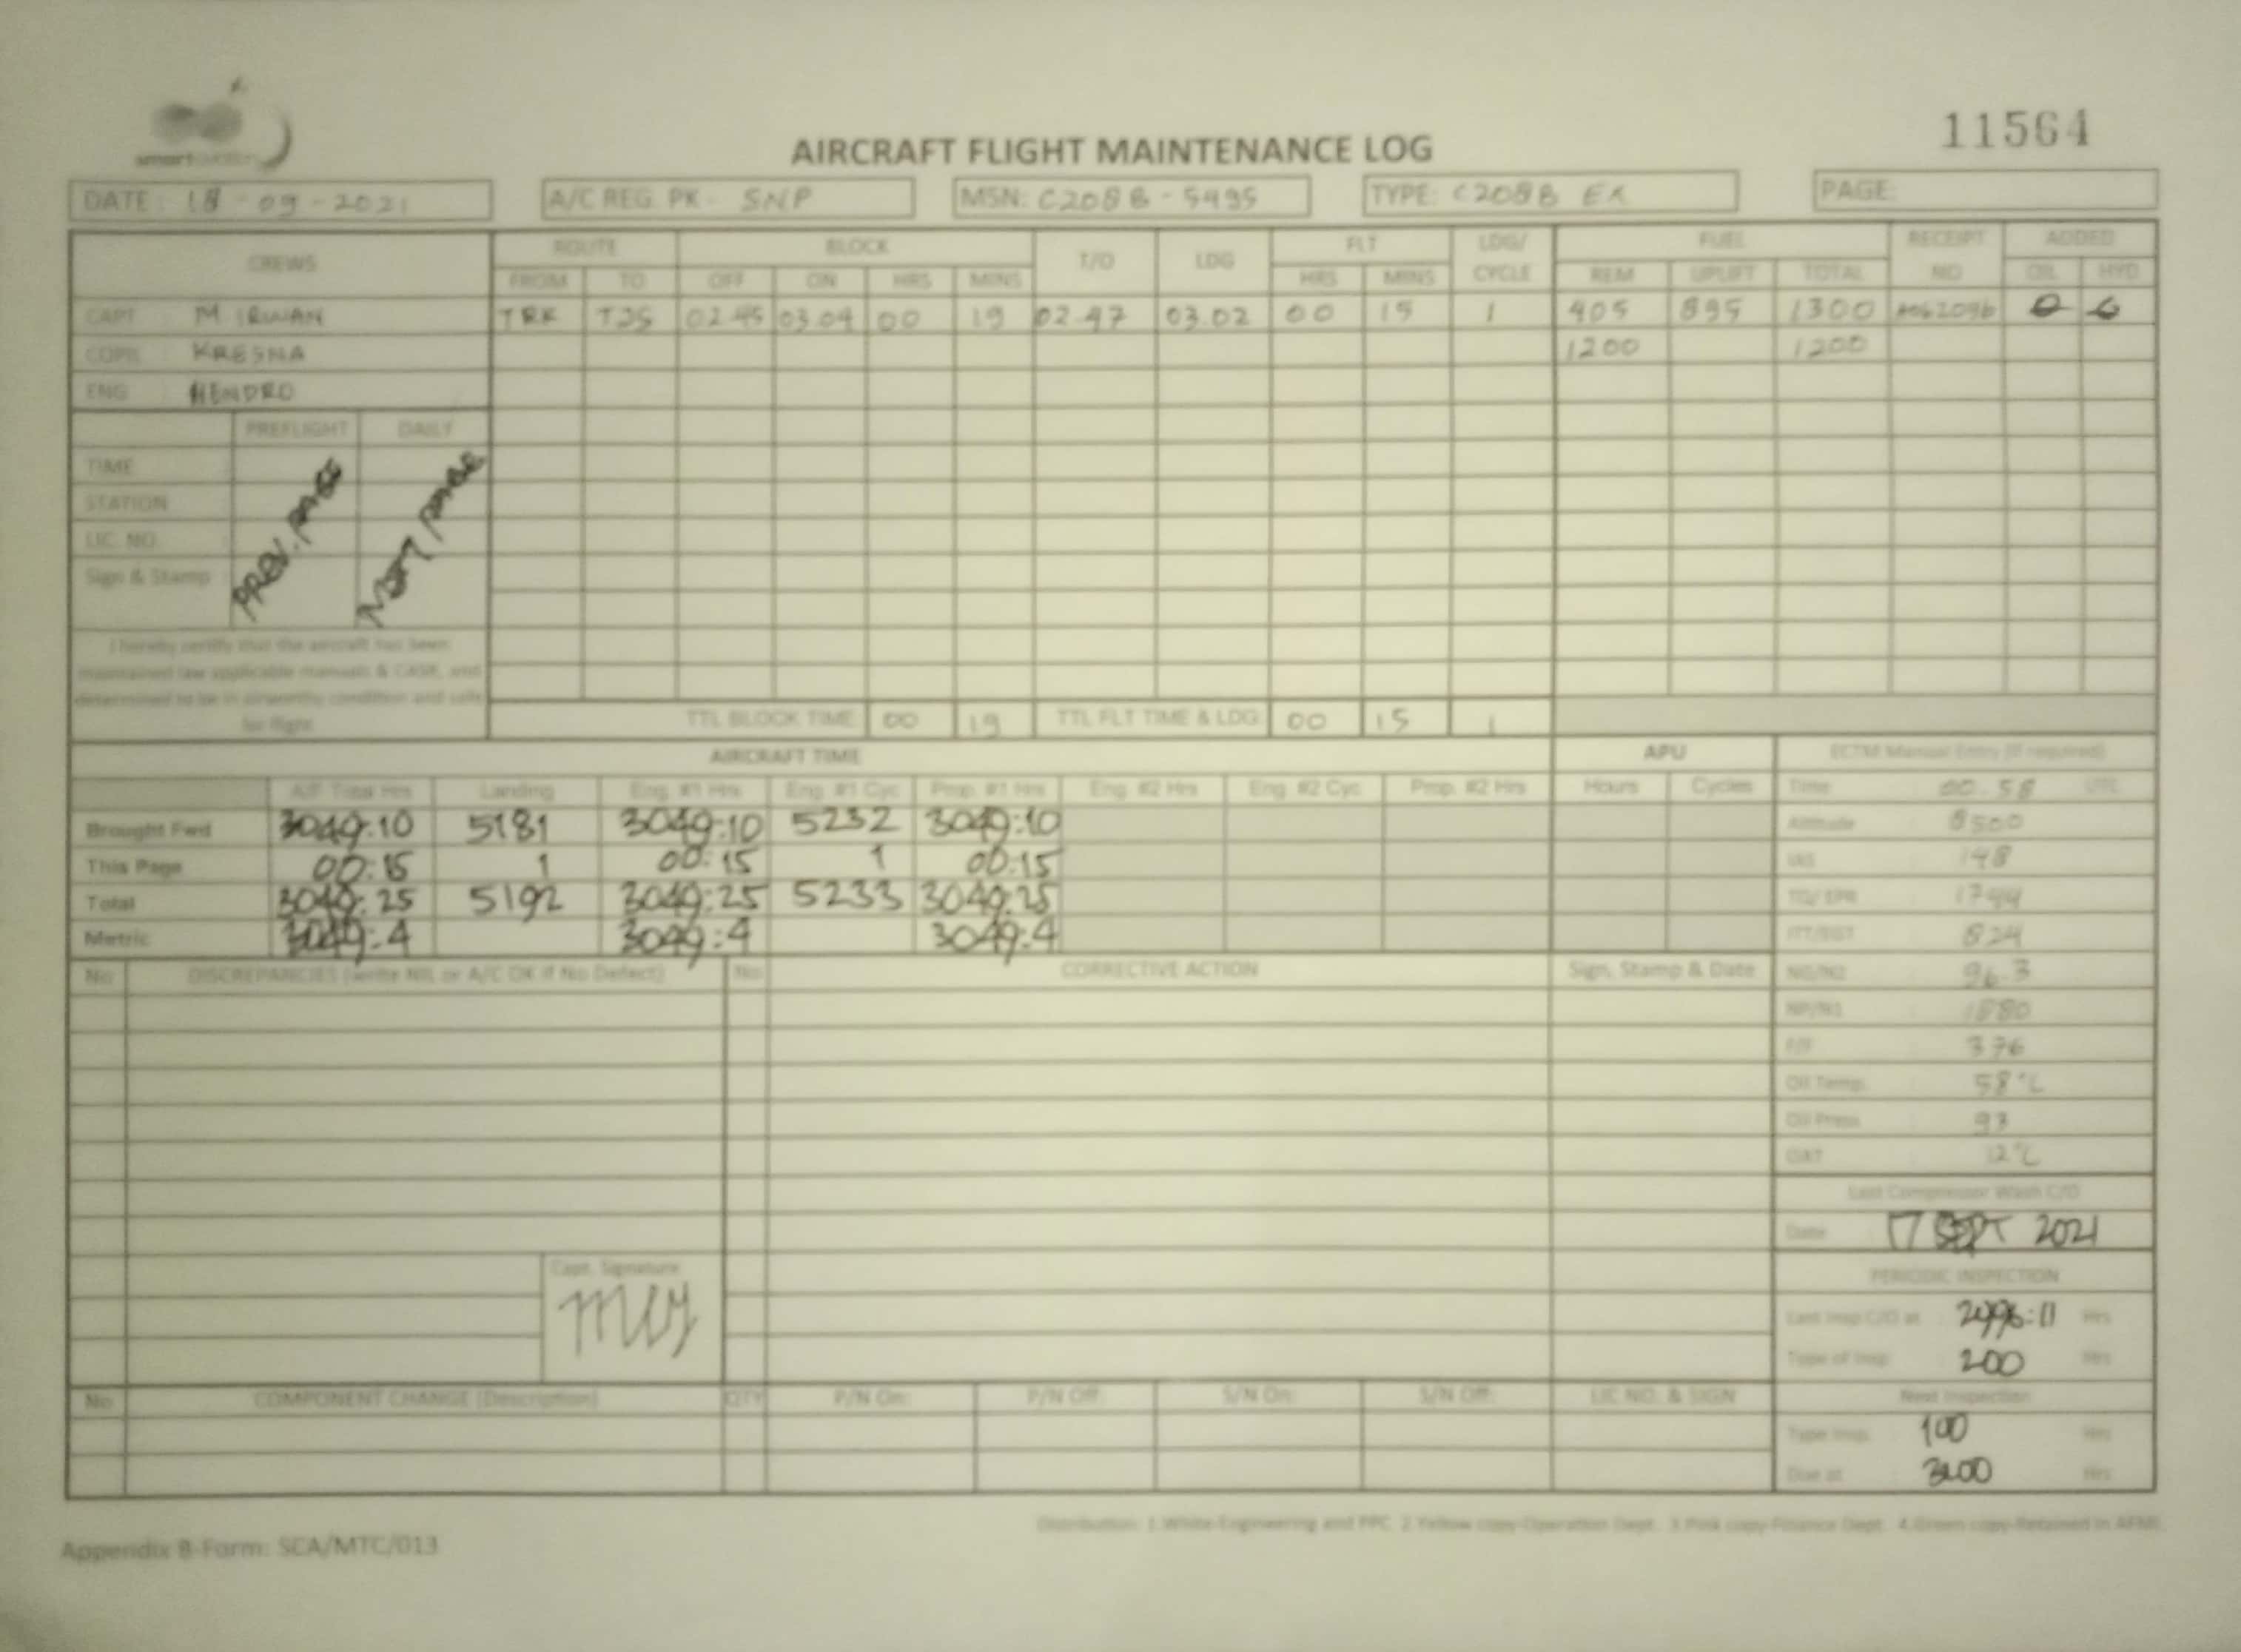 smart aviation
11564
AIRCRAFT FLIGHT MAINTENANCE LOG
DATE : 18 - 09 - 2021 A/C REG. PK - SNP MSN: C208B - 5495 TYPE: C208B EX PAGE:
CREWS ROUTE BLOCK T/O LDG FLT LDG/ FUEL RECEIPT ADDED
FROM TO OFF ON HRS MINS HRS MINS CYCLE REM UPLIFT TOTAL NO OIL HYD
CAPT M IRWAN TRK TJS 02.45 03.04 00 19 02.47 03.02 00 15 1 405 895 1300
COPIL : KRESNA 1200 1200
ENG : HENDRO
PREFLIGHT DAILY
TIME
STATION
LIC. NO.
Sign & Stamp
PREV. PAGE
NEXT PAGE
I hereby certify that the aircraft has been
maintained iaw applicable manuals & CASR, and
determined to be in airworthy condition and safe
for flight
TTL BLOCK TIME: 00 19 TTL FLT TIME & LDG: 00 15 1
AIRCRAFT TIME APU ECTM Manual Entry (if required)
A/F Total Hrs Landing Eng. #1 Hrs Eng. #1 Cyc Prop. #1 Hrs Eng. #2 Hrs Eng. #2 Cyc Prop. #2 Hrs Hours Cycles Time 00.58 UTC
Brought Fwd 3049:10 5181 3049:10 5232 3049:10 Altitude : 8500
This Page 00:15 1 00:15 1 00:15 IAS : 148
Total 3049:25 5192 3049:25 5233 3049:25 TQ/ EPR : 1744
Metric 3049:4 3049:4 3049:4 ITT/EGT : 824
No DISCREPANCIES (write NIL or A/C OK if No Defect) No CORRECTIVE ACTION Sign, Stamp & Date NG/N2 96.3
NP/N1 1880
F/F : 376
Oil Temp. : 58°C
Oil Press : 93
OAT : 12°C
Last Compressor Wash C/O
Date 17 SEPT 2021
Capt. Signature
PERIODIC INSPECTION
Last Insp C/O at : 2996:11 Hrs
Type of Insp : 200 Hrs
No COMPONENT CHANGE (Description) QTY P/N On: P/N Off: S/N On: S/N Off: LIC NO. & SIGN Next Inspection
Type Insp. 100 Hrs
Due at 3100 Hrs
Distribution: 1.White-Engineering and PPC 2.Yellow copy-Operation Dept. 3.Pink copy-Finance Dept. 4.Green copy-Retained in AFML
Appendix B-Form: SCA/MTC/013